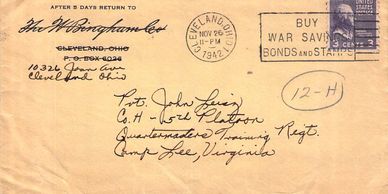 AFTER 5 DAYS RETURN TO
The W Bingham Co
CLEVELAND, OHIO
P. O. BOX 6026
10326 Joan Ave
Cleveland Ohio
CLEVELAND, OHIO
NOV 26
11-PM
1942
BUY
WAR SAVINGS
BONDS AND STAMPS
3 CENTS 3
12-H
Pvt. John
Co. H - 5th Platoon
Quartermasters Training Regt.
Camp Lee, Virginia